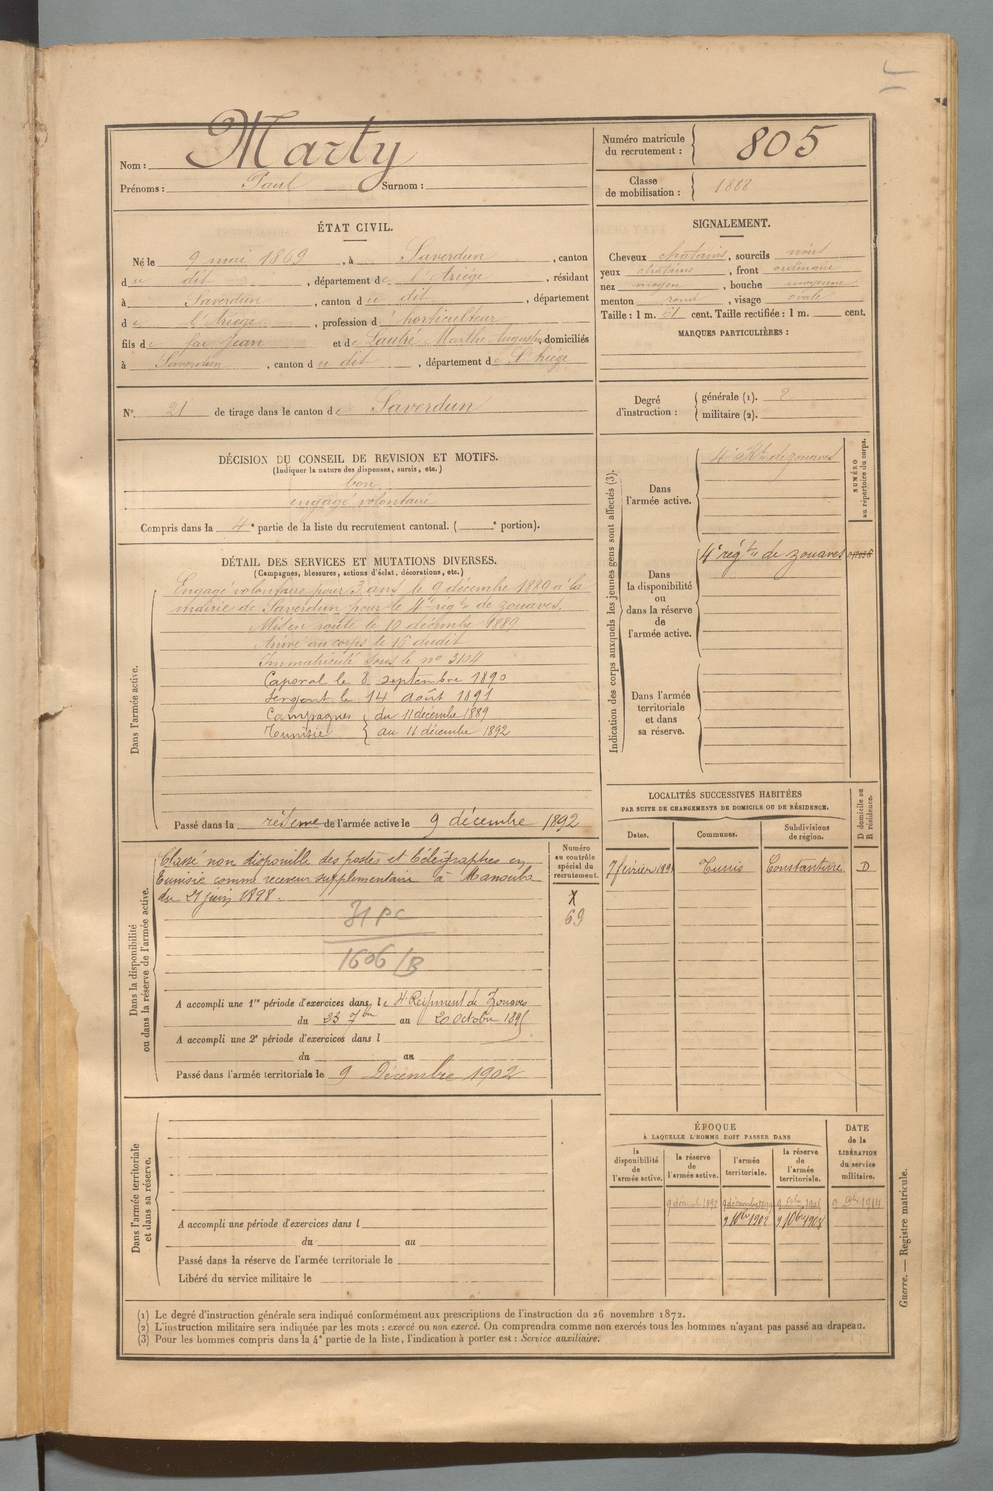 Nom : Marty
Prénoms : Paul Surnom :
Numéro matricule du recrutement : 805
Classe de mobilisation : 1888
ÉTAT CIVIL.
Né le 9 mai 1869, à Saverdun, canton
du dit, département de l'Ariège, résidant
à Saverdun, canton du dit, département
de l'Ariège, profession d'horticulteur
fils de feu Jean et de Marthe Auguste, domiciliés
à Saverdun, canton du dit, département de l'Ariège
SIGNALEMENT.
Cheveux chatains, sourcils noirs
yeux chatains, front ordinaire
nez moyen, bouche moyenne
menton rond, visage ovale
Taille : 1 m. 61 cent. Taille rectifiée : 1 m. cent.
MARQUES PARTICULIÈRES :
N° 21 de tirage dans le canton de Saverdun
Degré d'instruction :
générale (1). 2
militaire (2).
DÉCISION DU CONSEIL DE REVISION ET MOTIFS.
(Indiquer la nature des dispenses, sursis, etc.)
bon
engagé volontaire
Compris dans la 4e partie de la liste du recrutement cantonal. ( e portion).
DÉTAIL DES SERVICES ET MUTATIONS DIVERSES.
(Campagnes, blessures, actions d'éclat, décorations, etc.)
Dans l'armée active.
Engagé volontaire pour 3 ans le 9 décembre 1889 à la
mairie de Saverdun pour le 4e regt de zouaves.
Mis en route le 10 décembre 1889
Arrivé au corps le 16 dudit
Immatriculé sous le n° 3104
Caporal le 8 septembre 1890
Sergent le 14 août 1891
Campagnes { du 11 décembre 1889
Tunisie { au 11 décembre 1892
Passé dans la réserve de l'armée active le 9 décembre 1892
Indication des corps auxquels les jeunes gens sont affectés (3).
NUMÉRO au répertoire du corps.
Dans l'armée active.
4e Rt de zouaves
Dans la disponibilité ou dans la réserve de l'armée active.
4e régt de zouaves
Dans l'armée territoriale et dans sa réserve.
LOCALITÉS SUCCESSIVES HABITÉES
PAR SUITE DE CHANGEMENTS DE DOMICILE OU DE RÉSIDENCE.
Dates. Communes. Subdivisions de région. D domicile ou R résidence.
7 février Tunis Constantine D
Dans la disponibilité ou dans la réserve de l'armée active.
Numéro au contrôle spécial du recrutement.
Classé non disponible des postes et télégraphes en
Tunisie comme receveur supplémentaire à Manouba
du 21 juin 1898.
69
31 PC
1606/B
A accompli une 1re période d'exercices dans le 4e Régiment de Zouaves
du 23 7bre au 20 Octobre 1895
A accompli une 2e période d'exercices dans l
du au
Passé dans l'armée territoriale le 9 Décembre 1902
Dans l'armée territoriale et dans sa réserve.
A accompli une période d'exercices dans l
du au
Passé dans la réserve de l'armée territoriale le
Libéré du service militaire le
ÉPOQUE
À LAQUELLE L'HOMME DOIT PASSER DANS
la disponibilité de l'armée active. la réserve de l'armée active. l'armée territoriale. la réserve de l'armée territoriale.
DATE de la LIBÉRATION du service militaire.
9 décembre 1892 9 Xbre 1914
9 Xbre 1902 9 Xbre 1908
(1) Le degré d'instruction générale sera indiqué conformément aux prescriptions de l'instruction du 26 novembre 1872.
(2) L'instruction militaire sera indiquée par les mots : exercé ou non exercé. On comprendra comme non exercés tous les hommes n'ayant pas passé au drapeau.
(3) Pour les hommes compris dans la 4e partie de la liste, l'indication à porter est : Service auxiliaire.
Guerre. — Registre matricule.